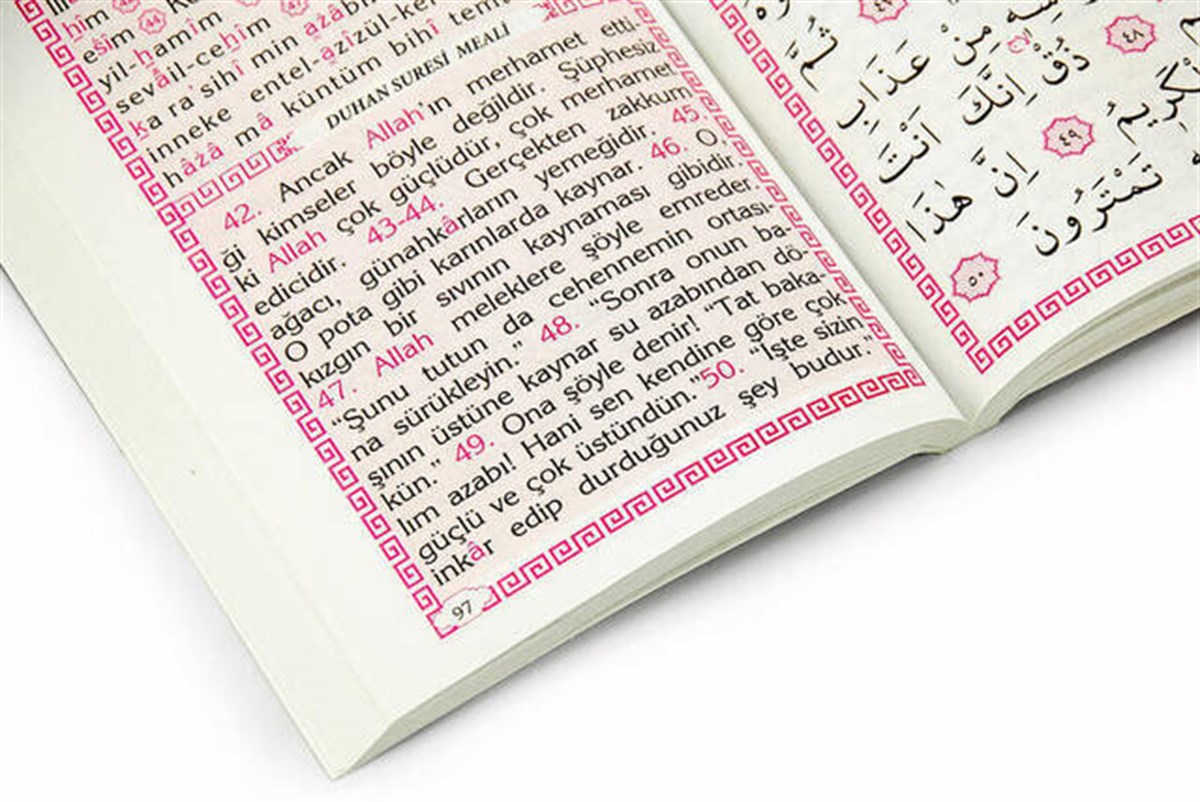 eŝîm 44
yil-hamîm
sevâil-cehîm min azâbi
ŝumme
inneke entel-azîzül-ker
hâżâ mâ küntüm bihî
DUHAN SURESİ MEALİ
42. Ancak Allah'ın merhamet etti-
ği kimseler böyle değildir. Şüphesiz
ki Allah çok güçlüdür, çok merhamet
edicidir. 43-44. Gerçekten zakkum
ağacı, günahkârların yemeğidir. 45.
O pota gibi karınlarda kaynar. 46. O,
kızgın bir sıvının kaynaması gibidir.
47. Allah meleklere şöyle emreder.
“Şunu tutun da cehennemin ortası-
na sürükleyin.” 48. “Sonra onun ba-
şının üstüne kaynar su azabından dö-
kün.” 49. Ona şöyle denir! “Tat baka-
lım azabı! Hani sen kendine göre çok
güçlü ve çok üstündün.”50. “İşte sizin
inkâr edip durduğunuz şey budur.”
97
ثُمَّ
٤٨
مِنْ عَذَابِ
ذُقْ اِنَّكَ اَنْتَ
٤٩
اِنَّ هٰذَا
تَمْتَرُونَ
٥٠